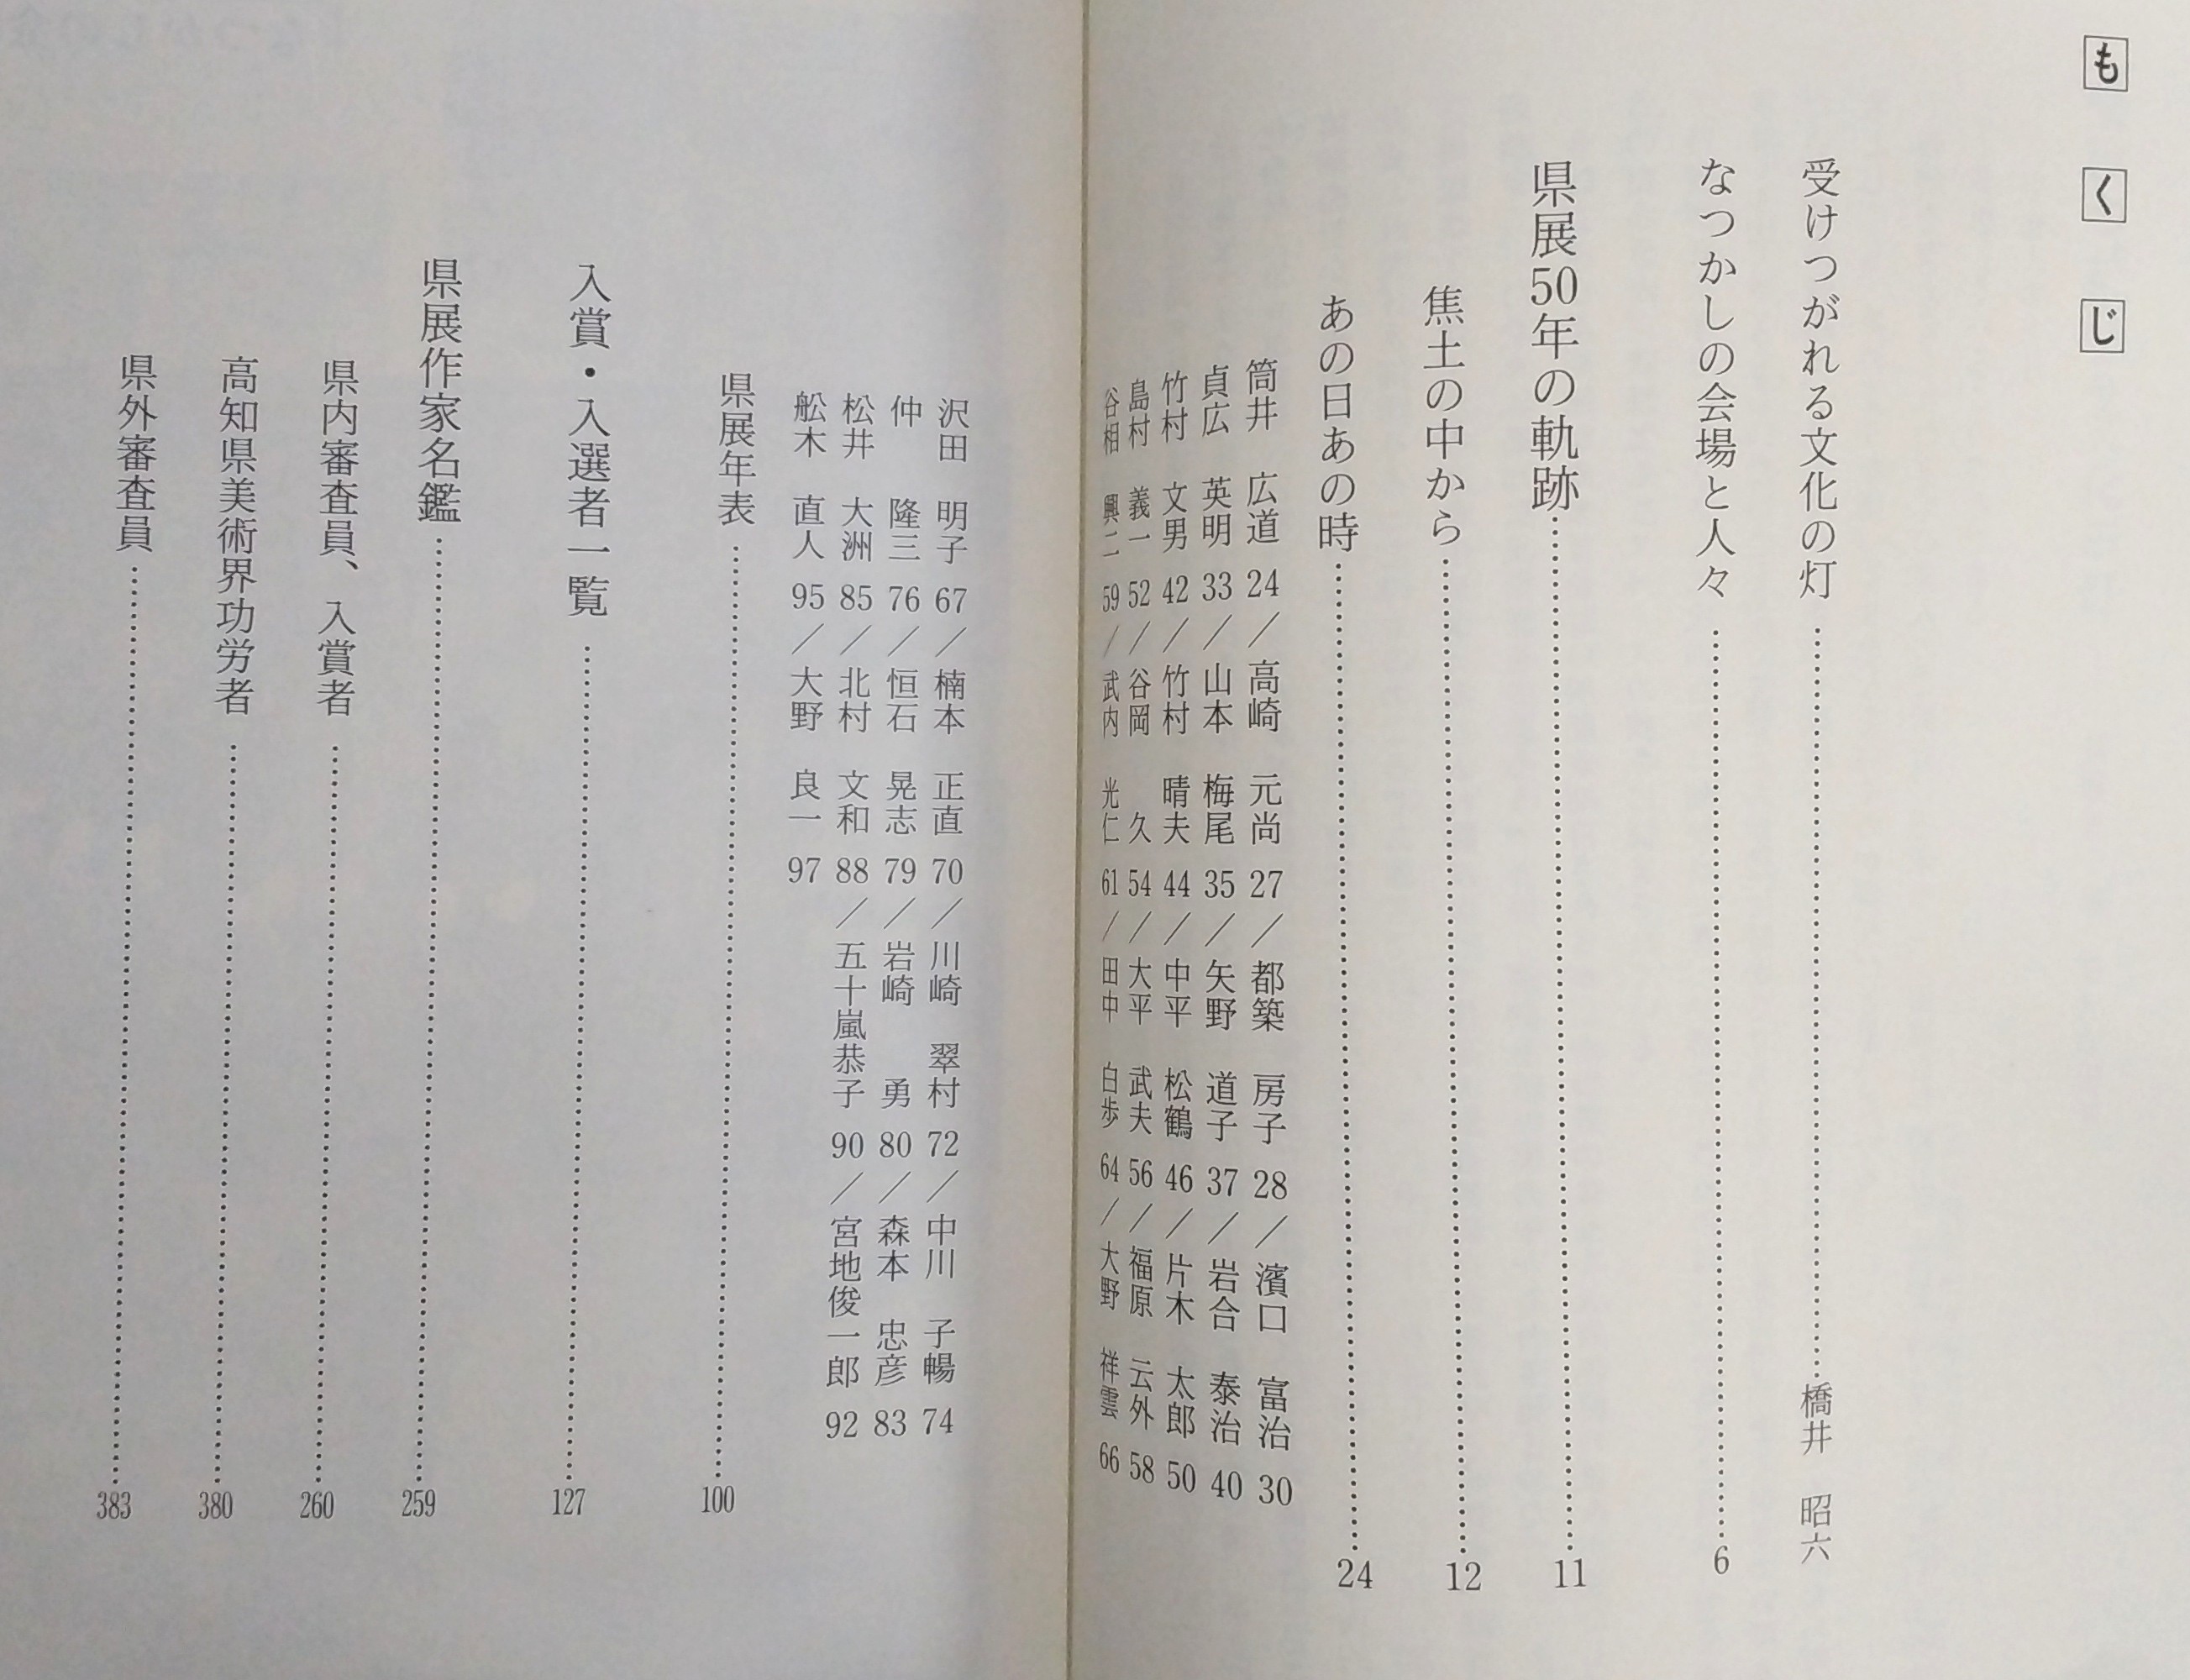 もくじ
受けつがれる文化の灯……橋井 昭六
なつかしの会場と人々……6
県展50年の軌跡……11
焦土の中から……12
あの日あの時……24
筒井 広道 24／高崎 元尚 27／都築 房子 28／濱口 富治 30
貞広 英明 33／山本 梅尾 35／矢野 道子 37／岩合 泰治 40
竹村 文男 42／竹村 晴夫 44／中平 松鶴 46／片木 太郎 50
島村 義一 52／谷岡 久 54／大平 武夫 56／福原 云外 58
谷相 興二 59／武内 光仁 61／田中 白歩 64／大野 祥雲 66
沢田 明子 67／楠本 正直 70／川崎 翠村 72／中川 子暢 74
仲 隆三 76／恒石 晃志 79／岩崎 勇 80／森本 忠彦 83
松井 大洲 85／北村 文和 88／五十嵐恭子 90／宮地俊一郎 92
舩木 直人 95／大野 良一 97
県展年表……100
入賞・入選者一覧……127
県展作家名鑑……259
県内審査員、入賞者……260
高知県美術界功労者……380
県外審査員……383